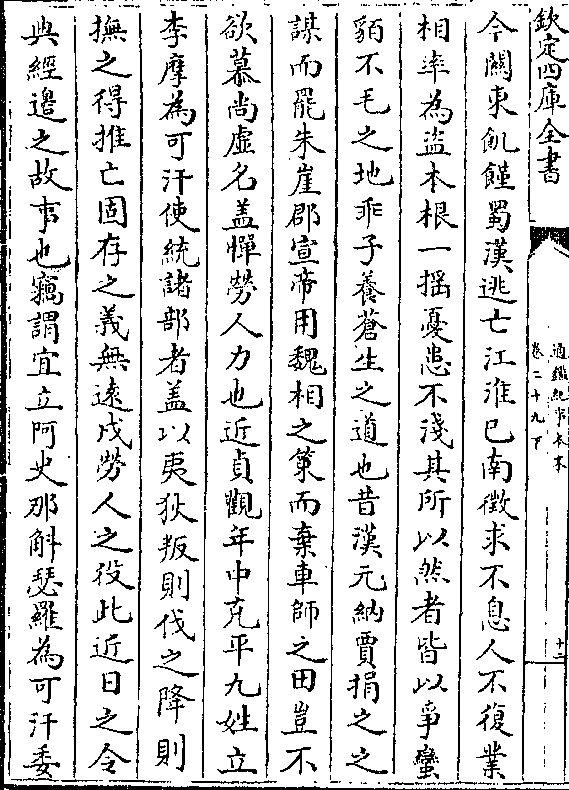 欽定四庫全書
通鑑紀事本末
卷二十九下
十二
今關東飢饉蜀漢逃亡江淮已南徵求不息人不復業
相率為盜本根一揺憂患不淺其所以然者皆以爭蠻
貊不毛之地乖子養蒼生之道也昔漢元納賈捐之之
謀而罷朱崖郡宣帝用魏相之策而棄車師之田豈不
欲慕尚虛名蓋憚勞人力也近貞觀年中克平九姓立
李摩為可汗使統諸部者蓋以夷狄叛則伐之降則
撫之得推亡固存之義無遠戍勞人之役此近日之令
典經邉之故事也竊謂宜立阿史那斛瑟羅為可汗委